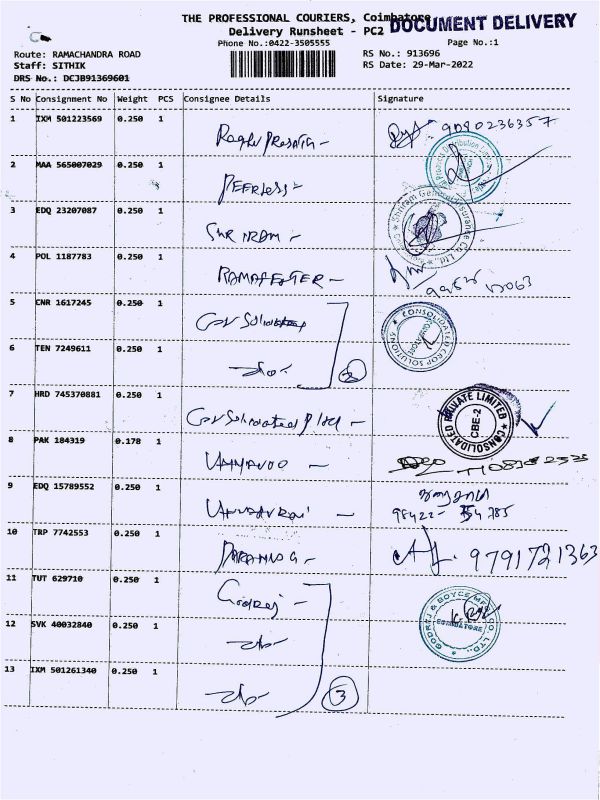 THE PROFESSIONAL COURIERS, Coimbatore
DOCUMENT DELIVERY
Delivery Runsheet - PC2
Phone No.:0422-3505555
Page No.:1
Route: RAMACHANDRA ROAD
RS No.: 913696
Staff: SITHIK
RS Date: 29-Mar-2022
DRS No.: DCJB91369601
S No Consignment No Weight PCS Consignee Details Signature
1 IXM 501223569 0.250 1 9080236357
2 MAA 565007029 0.250 1 PEERLESS-
3 EDQ 23207087 0.250 1 Shriram General Insurance Co Ltd.
4 POL 1187783 0.250 1
5 CNR 1617245 0.250 1 Consolidated CONSOLIDATED CROP SOLUTIONS COIMBATORE
6 TEN 7249611 0.250 1 -do- 2
7 HRD 745370881 0.250 1 Consolidated CONSOLIDATED PRIVATE LIMITED CBE-2
8 PAK 184319 0.178 1
9 EDQ 15789552 0.250 1 98422- 54785
10 TRP 7742553 0.250 1 9791721363
11 TUT 629710 0.250 1 Godrej GODREJ & BOYCE MFG. CO. LTD., COIMBATORE
12 SVK 40032840 0.250 1 -do-
13 IXM 501261340 0.250 1 -do- 3